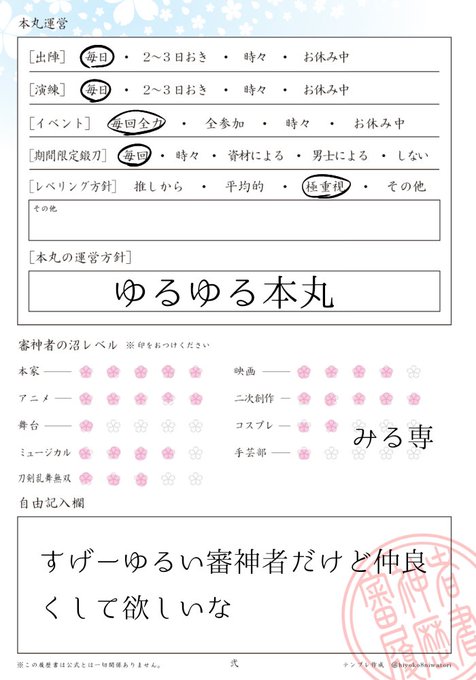 本丸運営
[出陣] 毎日 ・ 2～3日おき ・ 時々 ・ お休み中
[演練] 毎日 ・ 2～3日おき ・ 時々 ・ お休み中
[イベント] 毎回全力 ・ 全参加 ・ 時々 ・ お休み中
[期間限定鍛刀] 毎回 ・ 時々 ・ 資材による ・ 男士による ・ しない
[レベリング方針] 推しから ・ 平均的 ・ 極重視 ・ その他
その他
[本丸の運営方針]
ゆるゆる本丸
審神者の沼レベル ※ 印をおつけください
本家
映画
アニメ
二次創作
舞台
コスプレ
みる専
ミュージカル
手芸部
刀剣乱舞無双
自由記入欄
すげーゆるい審神者だけど仲良
くして欲しいな
審神者
履歴書
※この履歴書は公式とは一切関係ありません。
弐
テンプレ作成 @hiyoko8niwatori